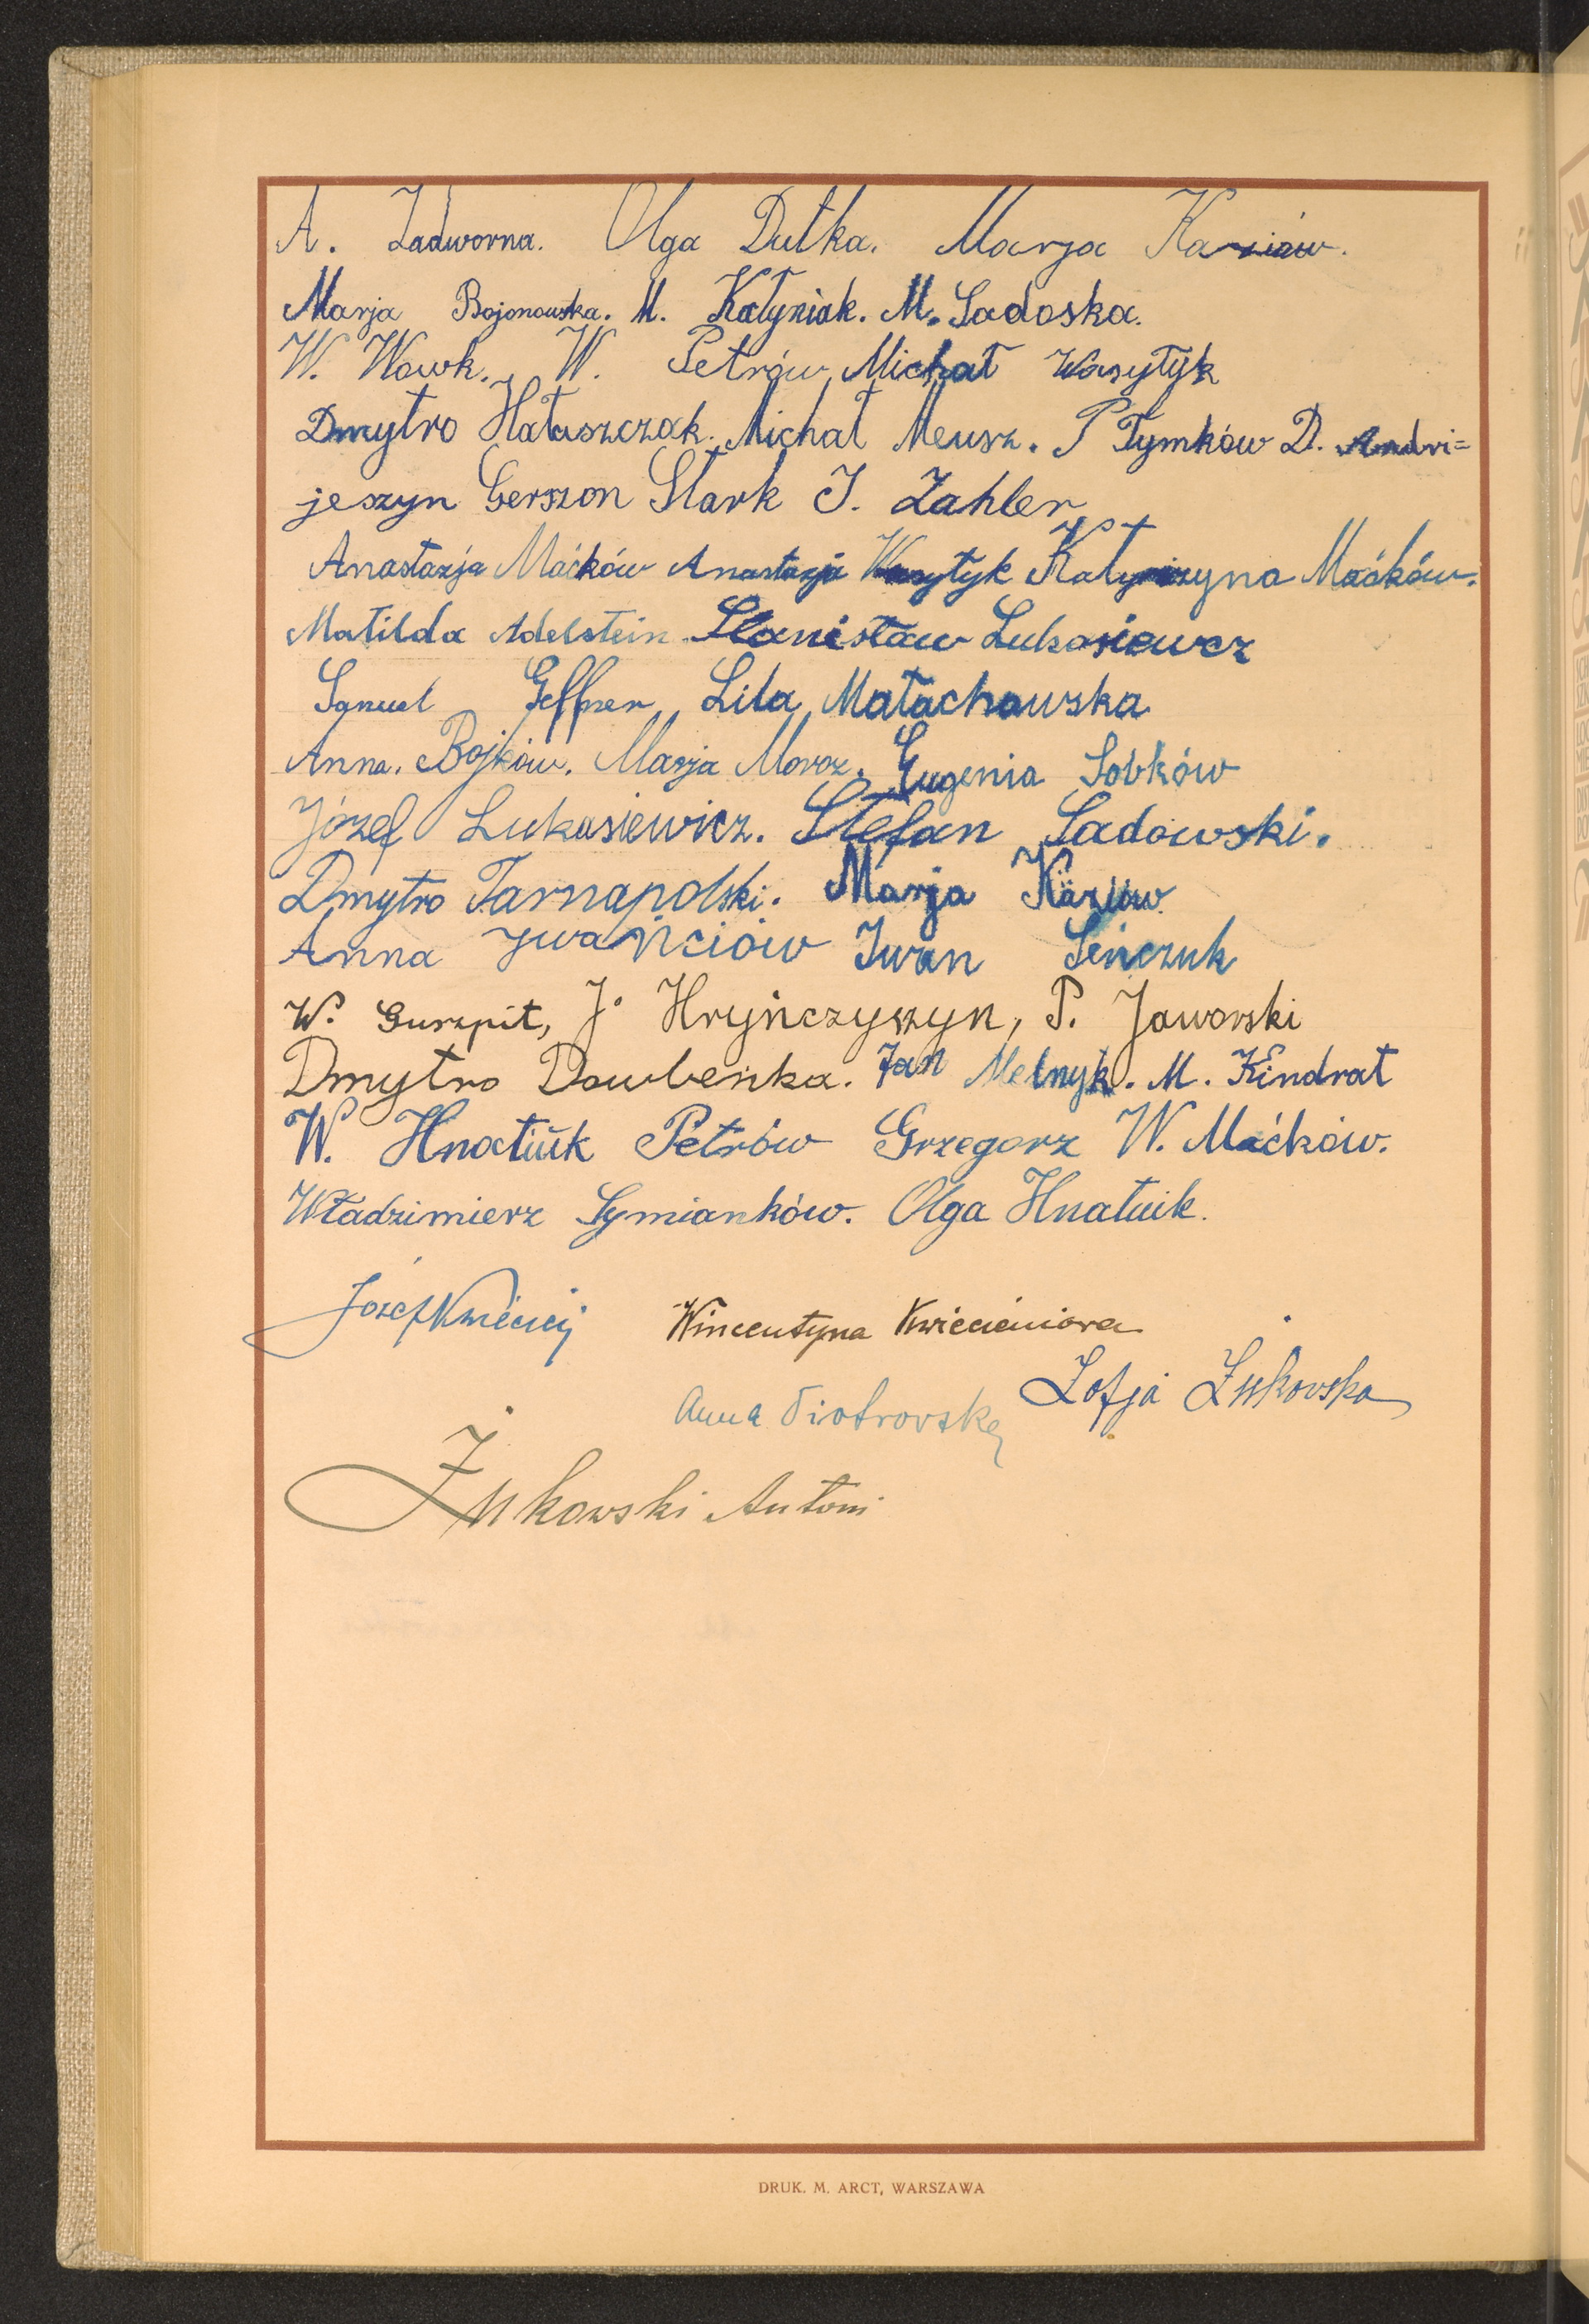 A. Zadworna. Olga Dutka. Marja Kaziów.
Marja Bojonowska. M. Katyniak. M. Sadoska.
W. Wowk. W. Petrów, Michał Wasyłyk
Dmytro Hałaszczak. Michał Meusz. P Tymków D. Andri=
jeszyn Gerszon Stark J. Zahler
Anastazja Maćków Anastazja Wasyłyk Katyrzyna Maćków.
Matilda Adelstein Stanisław Lukasiewcz
Geffner, Lila Małachowska
Anna. Bojków. Marja Moroz. Eugenia Sobków
Józef Lukasiewicz. Stefan Sadowski.
Dmytro Tarnapolski. Marja Kaziów.
Anna Iwańciów Iwan Seńczuk
W. Gurzpit, J. Hryńczyszyn, P. Jaworski
Dmytro Dowbeńka. Jan Melnyk. M. Kindrat
W. Hnatiuk Petrów Grzegorz W. Maćków.
Władzimierz Symianków. Olga Hnatuik.
Józef Kwieciej Wincentyna Kwiecieniowa
Zofja Żukowska
Anna Piotrowska
Żukowski Antoni
DRUK. M. ARCT, WARSZAWA